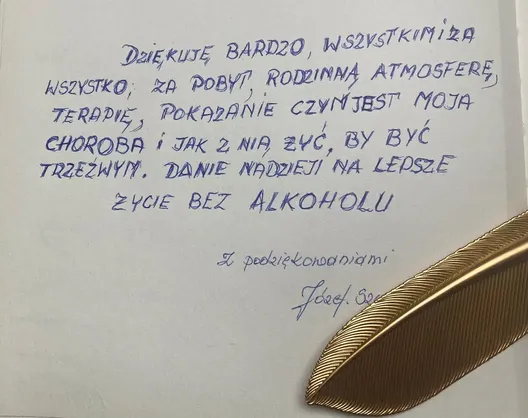 DZIĘKUJĘ BARDZO, WSZYSTKIM I ZA
WSZYSTKO; ZA POBYT, RODZINNĄ ATMOSFERĘ,
TERAPIĘ, POKAZANIE CZYM JEST MOJA
CHOROBA i JAK Z NIĄ ŻYĆ, BY BYĆ
TRZEŹWYM. DANIE NADZIEJI NA LEPSZE
ŻYCIE BEZ ALKOHOLU
Z podziękowaniami
Józef.